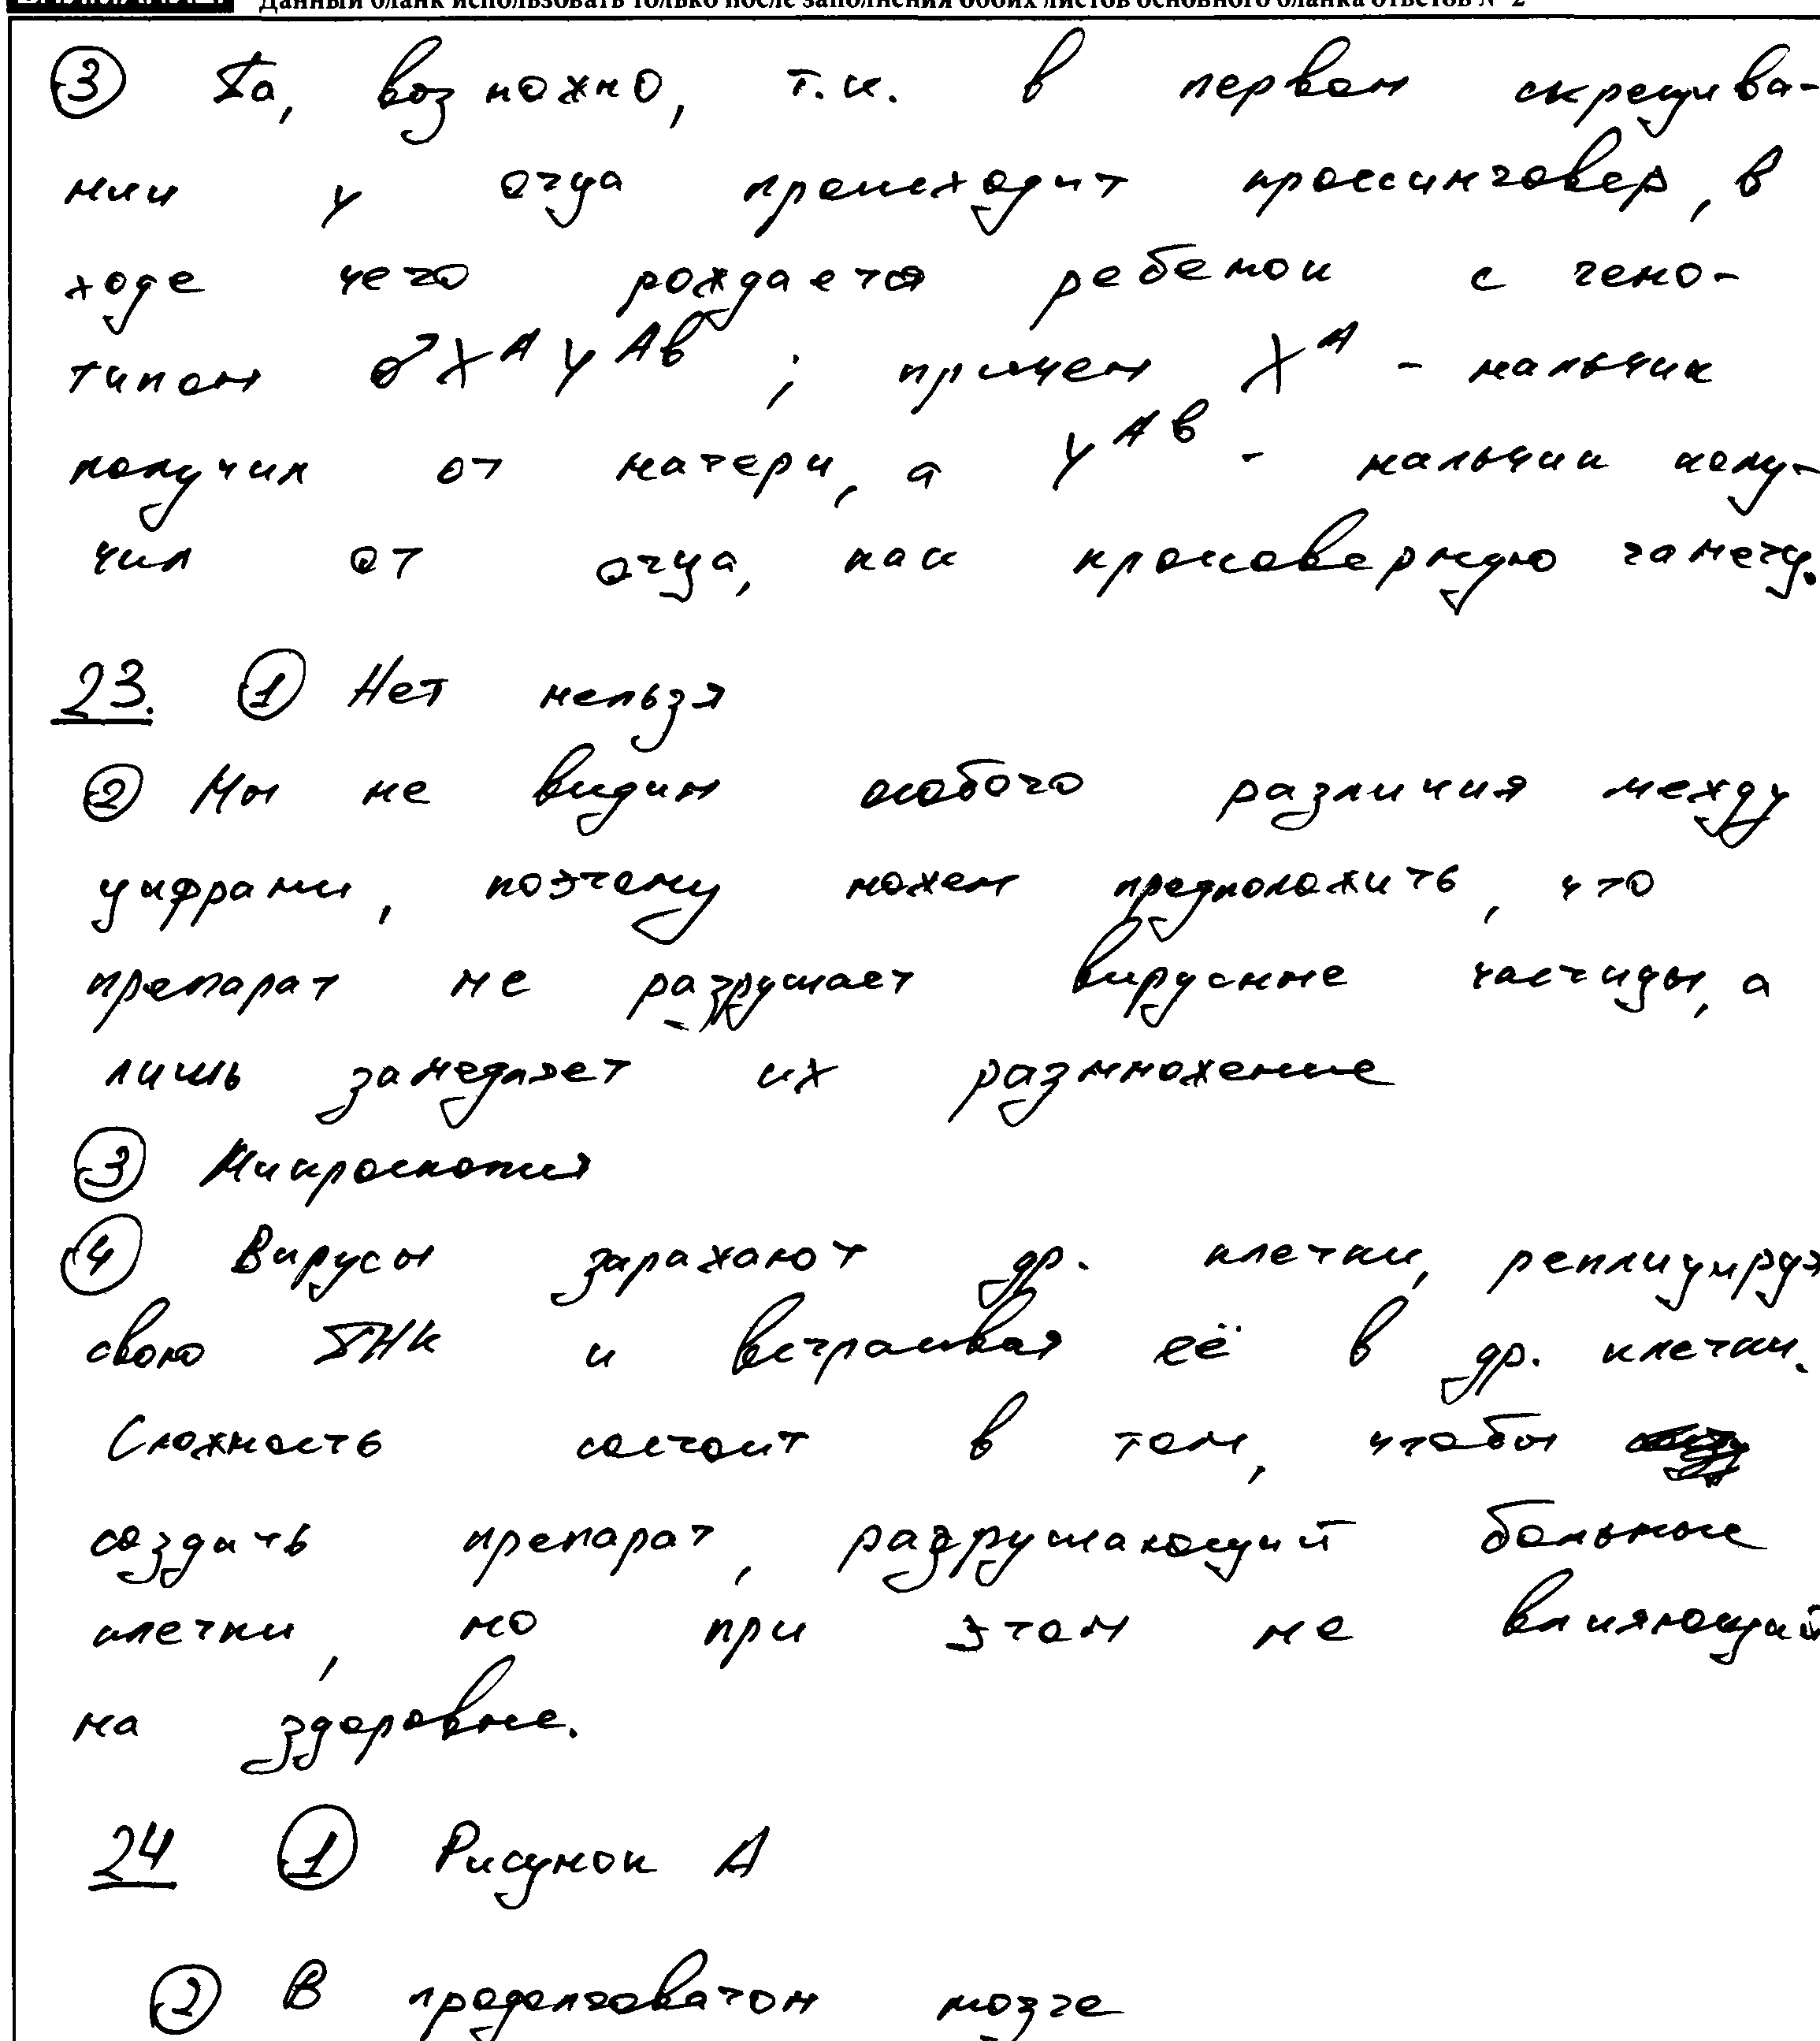 Данный бланк использовать только после заполнения обоих листов основного бланка ответов № 2
③ Да, возможно, т.к. в первом скрещива-
нии у отца происходит кроссинговер, в
ходе чего рождается ребенок с гено-
типом ♂X^A Y^Ab ; причем X^A - мальчик
получил от матери, а Y^Ab - мальчик полу-
чил от отца, как кроссоверную гамету.
23. ① Нет нельзя
② Мы не видим особого различия между
цифрами, поэтому можем предположить, что
препарат не разрушает вирусные частицы, а
лишь замедляет их размножение
③ Микроскопия
④ Вирусы заражают др. клетки, реплицируя
свою ДНК и встраивая её в др. клетки.
Сложность состоит в том, чтобы
создать препарат, разрушающий больные
клетки, но при этом не влияющий
на здоровые.
24 ① Рисунок А
② В продолговатом мозге